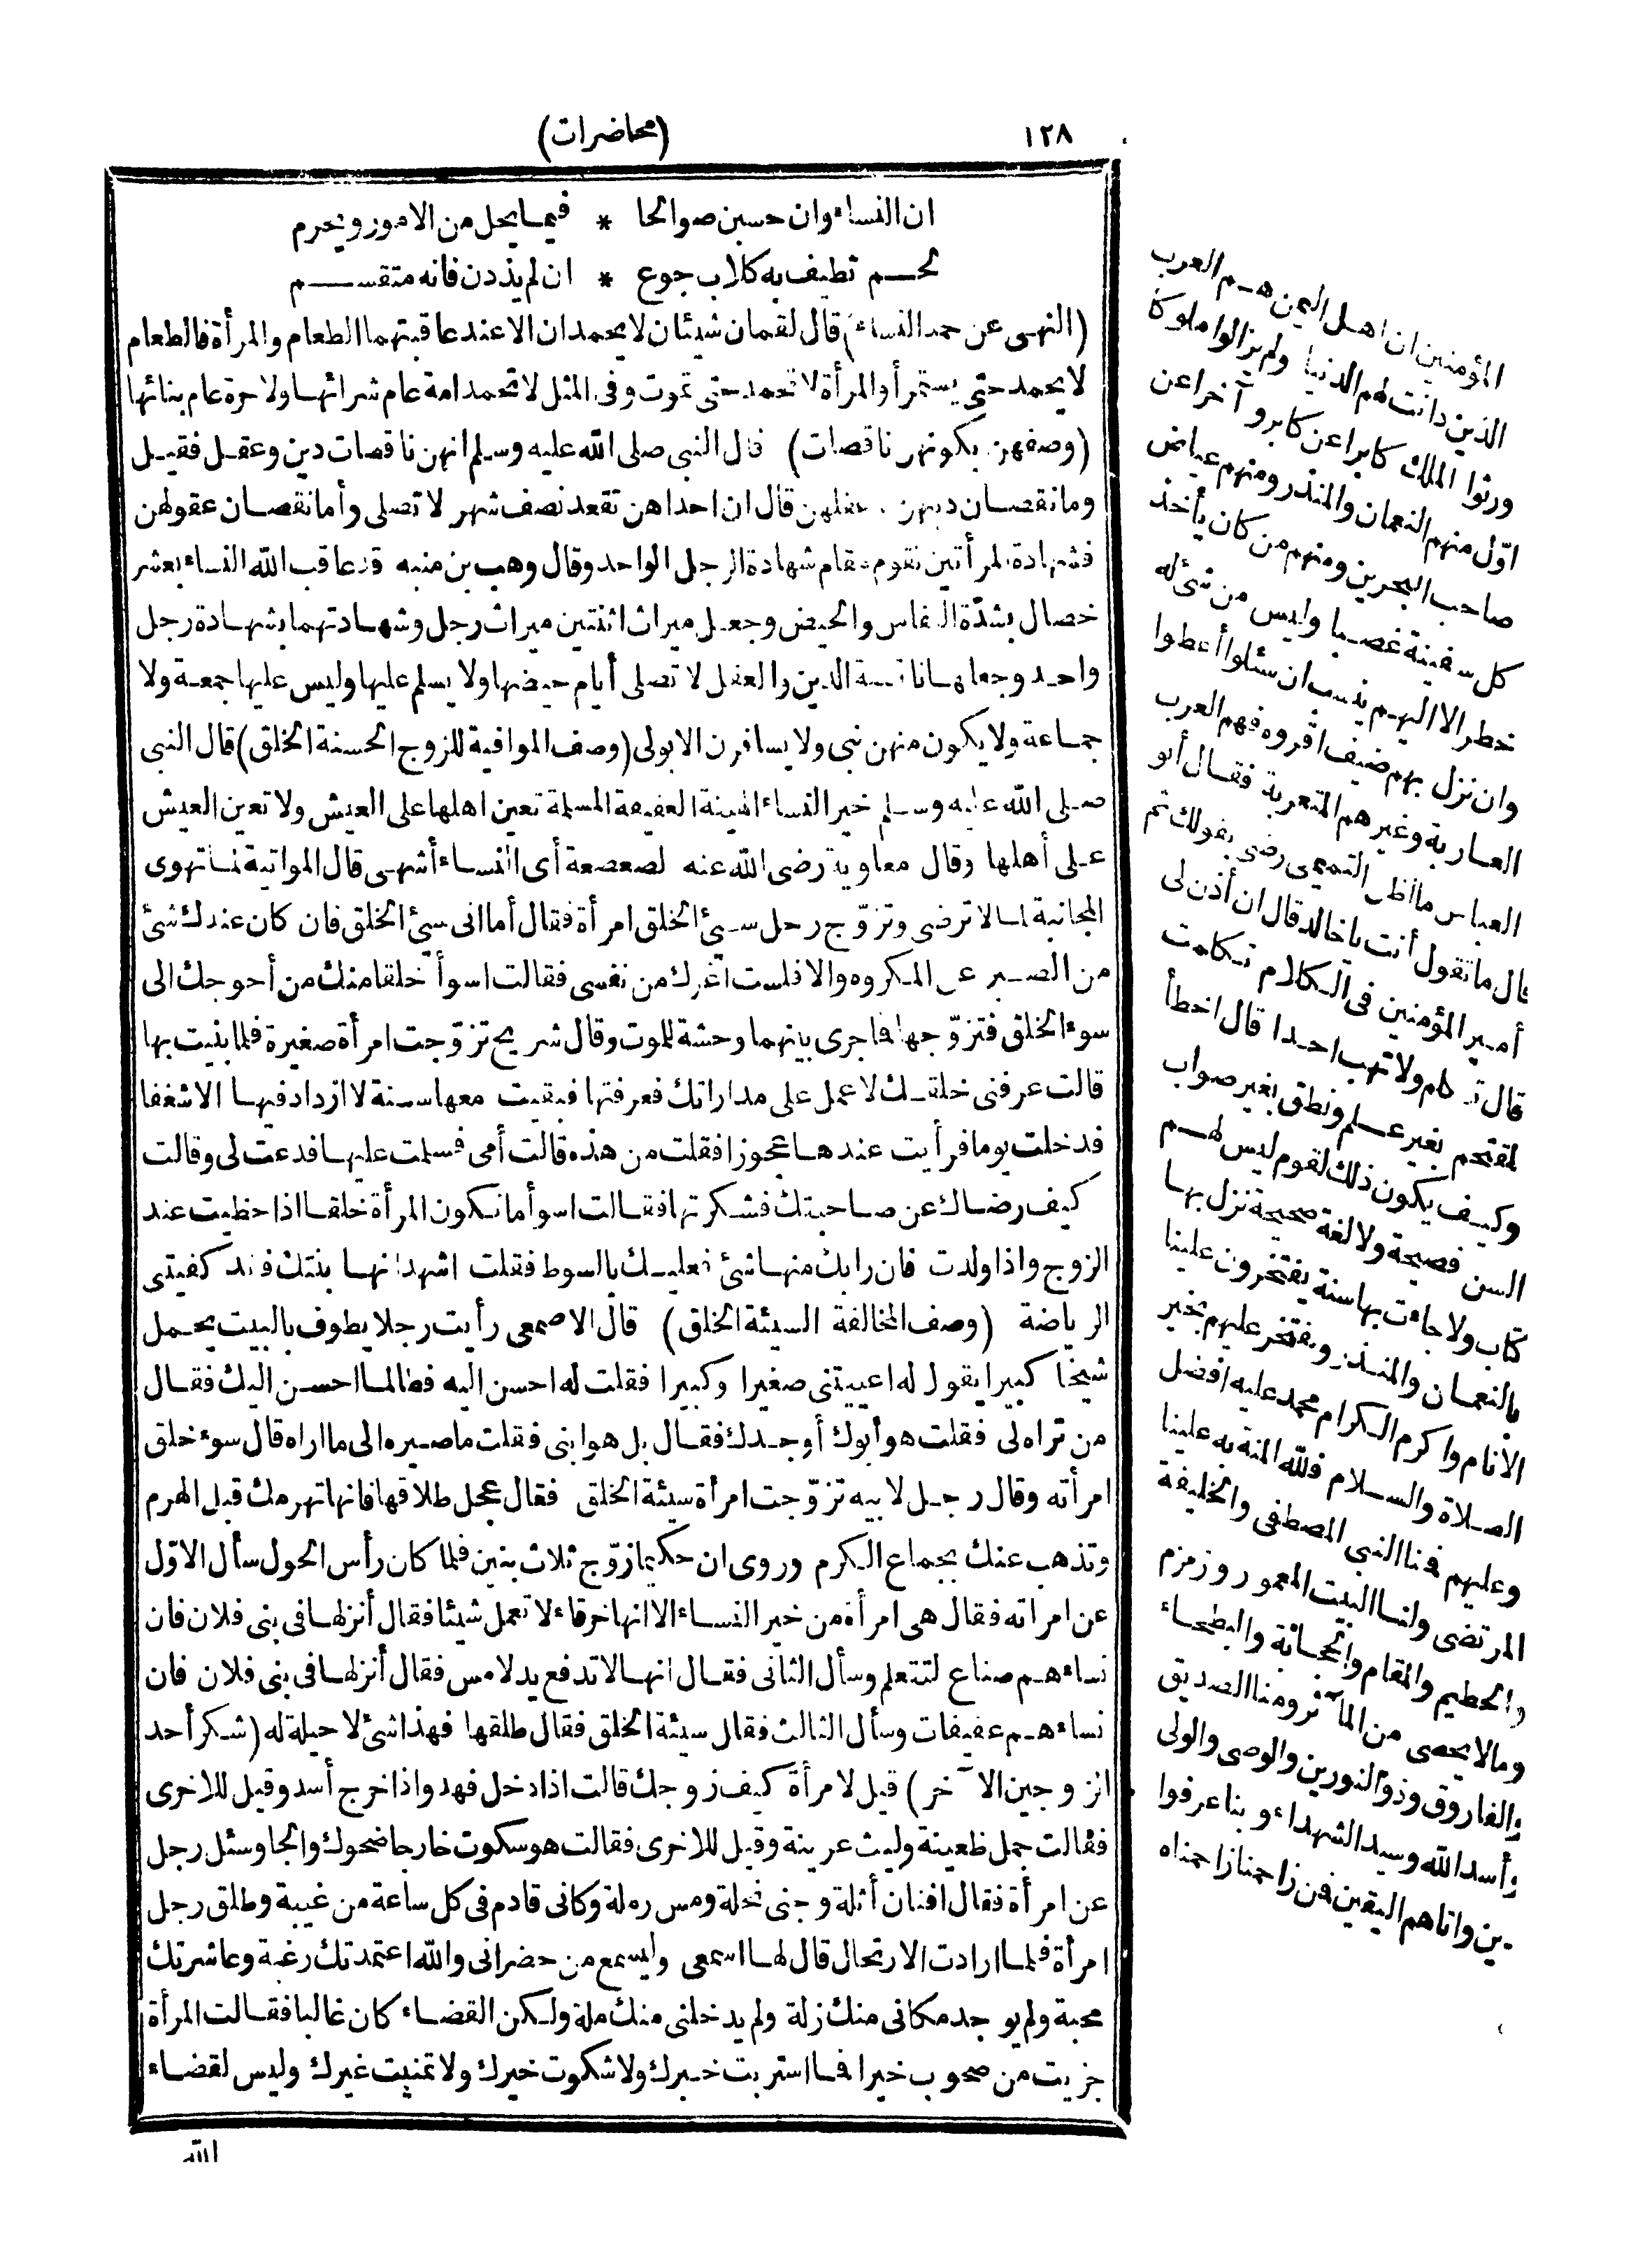 ١٢٨
(محاضرات)
ان النساء وان حسبن صوالحا * فيما يحل من الامور ويحرم
لحم تطيف به كلاب جوع * ان لم يذدن فانه متقسم
(النهى عن حمد النساء) قال لقمان شيئان لا يحمدان الا عند عاقبتهما الطعام والمرأة فالطعام
لا يحمد حتى يستمرأ والمرأة لا تحمد حتى تموت وفى المثل لا تحمد امة عام شرائها ولا حرة عام بنائها
(وصفهن بكونهن ناقصات) قال النبى صلى الله عليه وسلم انهن ناقصات دين وعقل فقيل
وما نقصان دينهن وعقلهن قال ان احداهن تقعد نصف شهر لا تصلى وأما نقصان عقولهن
فشهادة المرأتين تقوم مقام شهادة الرجل الواحد وقال وهب بن منبه قد عاقب الله النساء بعشر
خصال بشدّة النفاس والحيض وجعل ميراث اثنتين ميراث رجل وشهادتهما بشهادة رجل
واحد وجعلها ناقصة الدين والعقل لا تصلى أيام حيضها ولا يسلم عليها وليس عليها جمعة ولا
جماعة ولا يكون منهن نبى ولا يسافرن الا بولى (وصف الموافية للزوج الحسنة الخلق) قال النبى
صلى الله عليه وسلم خير النساء الهينة العفيفة المسلمة تعين اهلها على العيش ولا تعين العيش
على أهلها وقال معاوية رضى الله عنه لصعصعة أى النساء أشهى قال المواتية لما تهوى
المجانبة لما لا ترضى وتزوّج رجل سيئ الخلق امرأة فقال أما انى سيئ الخلق فان كان عندك شئ
من الصبر على المكروه والا فلست اغرك من نفسى فقالت اسوأ خلقا منك من أحوجك الى
سوء الخلق فتزوّجها فما جرى بينهما وحشة للموت وقال شريح تزوّجت امرأة صغيرة فلما بنيت بها
قالت عرفنى خلقك لاعمل على مداراتك فعرفتها فبقيت معها سنة لا ازداد فيها الا شغفا
فدخلت يوما فرأيت عندها عجوزا فقلت من هذه قالت أمى فسلمت عليها فدعت لى وقالت
كيف رضاك عن صاحبتك فشكرتها فقالت اسوأ ما تكون المرأة خلقا اذا حظيت عند
الزوج واذا ولدت فان رابك منها شئ فعليك بالسوط فقلت اشهد انها بنتك فقد كفيتنى
الرياضة (وصف المخالفة السيئة الخلق) قال الاصمعى رأيت رجلا يطوف بالبيت يحمل
شيخا كبيرا يقول له اعييتنى صغيرا وكبيرا فقلت له احسن اليه فطالما احسن اليك فقال
من تراه لى فقلت هو أبوك أو جدك فقال بل هو ابنى فقلت ما صيره الى ما اراه قال سوء خلق
امرأته وقال رجل لابيه تزوّجت امرأة سيئة الخلق فقال عجل طلاقها فانها تهرمك قبل الهرم
وتذهب عنك بجماع الكرم وروى ان حكيما زوّج ثلاث بنين فلما كان رأس الحول سأل الاوّل
عن امراته فقال هى امرأة من خير النساء الا انها خرقاء لا تعمل شيئا فقال أنزلها فى بنى فلان فان
نساءهم صناع لتتعلم وسأل الثانى فقال انها لا تدفع يد لامس فقال أنزلها فى بنى فلان فان
نساءهم عفيفات وسأل الثالث فقال سيئة الخلق فقال طلقها فهذا شئ لا حيلة له (شكر أحد
الزوجين الآخر) قيل لامرأة كيف زوجك قالت اذا دخل فهد واذا خرج أسد وقيل للاخرى
فقالت جمل ظعينة وليث عرينة وقيل للاخرى فقالت هو سكوت خارجا ضحوك والجا وسئل رجل
عن امرأة فقال افنان أثلة وجنى نخلة ومس رملة وكانى قادم فى كل ساعة من غيبة وطلق رجل
امرأة فلما ارادت الارتحال قال لها اسمعى وليسمع من حضر انى والله اعتمدتك رغبة وعاشرتك
محبة ولم يوجد مكانى منك زلة ولم يدخلنى منك ملة ولكن القضاء كان غالبا فقالت المرأة
جزيت من صحوب خيرا فما استربت خبرك ولا شكوت خيرك ولا تمنيت غيرك وليس لقضاء
الله
المؤمنين ان اهل اليمن هم العرب
الذين دانت لهم الدنيا ولم يزالوا ملوكا
ورثوا الملك كابرا عن كابر وآخرا عن
اوّل منهم النعمان والمنذر ومنهم عياض
صاحب البحرين ومنهم من كان يأخذ
كل سفينة غصبا وليس من شئ له
خطر الا اليهم ينسب ان سئلوا أعطوا
وان نزل بهم ضيف اقروه فهم العرب
العاربة وغيرهم المتعربة فقال أبو
العباس ما أظن التميمى رضى بقولك ثم
قال ما تقول أنت يا خالد قال ان أذن لى
أمير المؤمنين فى الكلام تكلمت
قال تكلم ولا تهب احدا قال اخطأ
المقتحم بغير علم ونطق بغير صواب
وكيف يكون ذلك لقوم ليس لهم
السن فصيحة ولا لغة صحيحة نزل بها
كتاب ولا جاءت بها سنة يفتخرون علينا
بالنعمان والمنذر ونفتخر عليهم بخير
الانام واكرم الكرام محمد عليه افضل
الصلاة والسلام فلله المنة به علينا
وعليهم فمنا النبى المصطفى والخليفة
المرتضى ولنا البيت المعمور وزمزم
والحطيم والمقام والحجابة والبطحاء
وما لا يحصى من المآثر ومنا الصديق
والفاروق وذو النورين والوصى والولى
وأسد الله وسيد الشهداء وبنا عرفوا
الدين واتاهم اليقين فمن زاحمنا زاحمناه